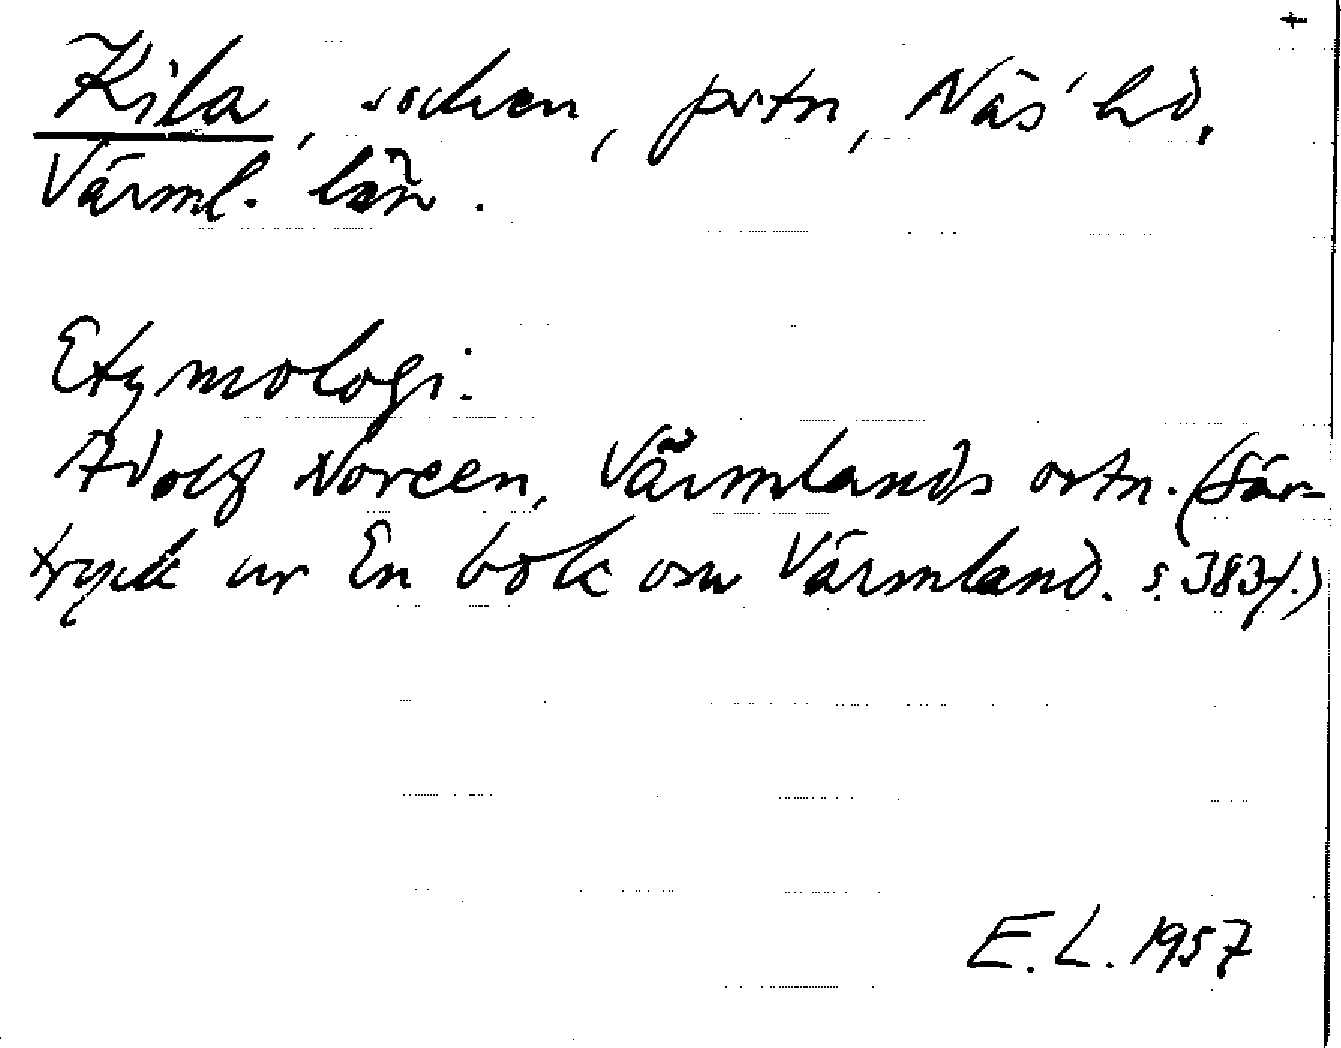 Kila, socken, pstn, Näs' hd,
Värml. län.
Etymologi:
Adolf Noreen, Värmlands ortn. (Sär-
tryck ur En bok om Värmland. s. 383f.)
E. L. 1957